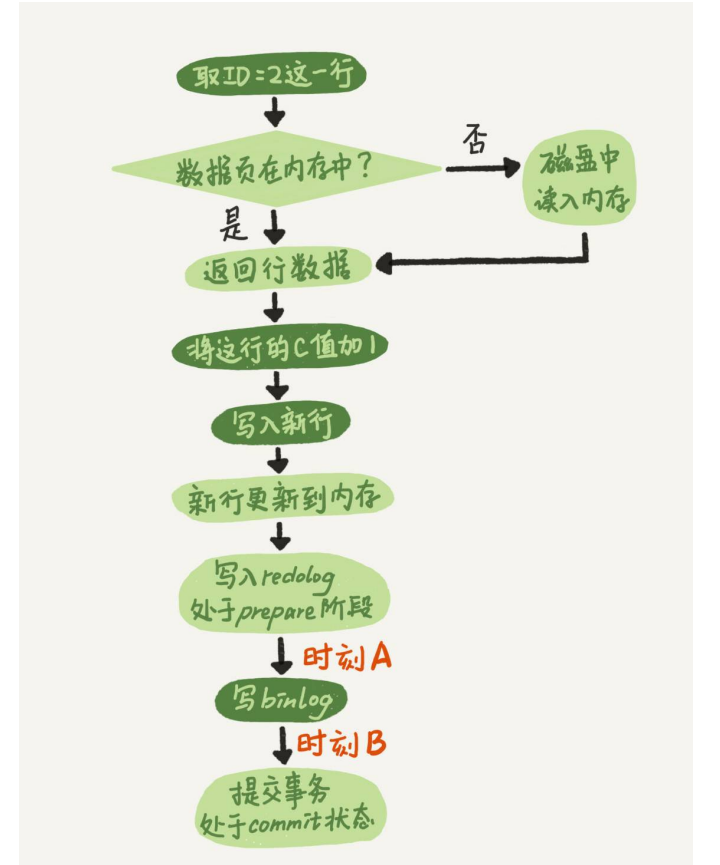 取ID=2这一行
数据页在内存中？
否
磁盘中
读入内存
是
返回行数据
将这行的C值加1
写入新行
新行更新到内存
写入redolog
处于prepare阶段
时刻A
写binlog
时刻B
提交事务
处于commit状态